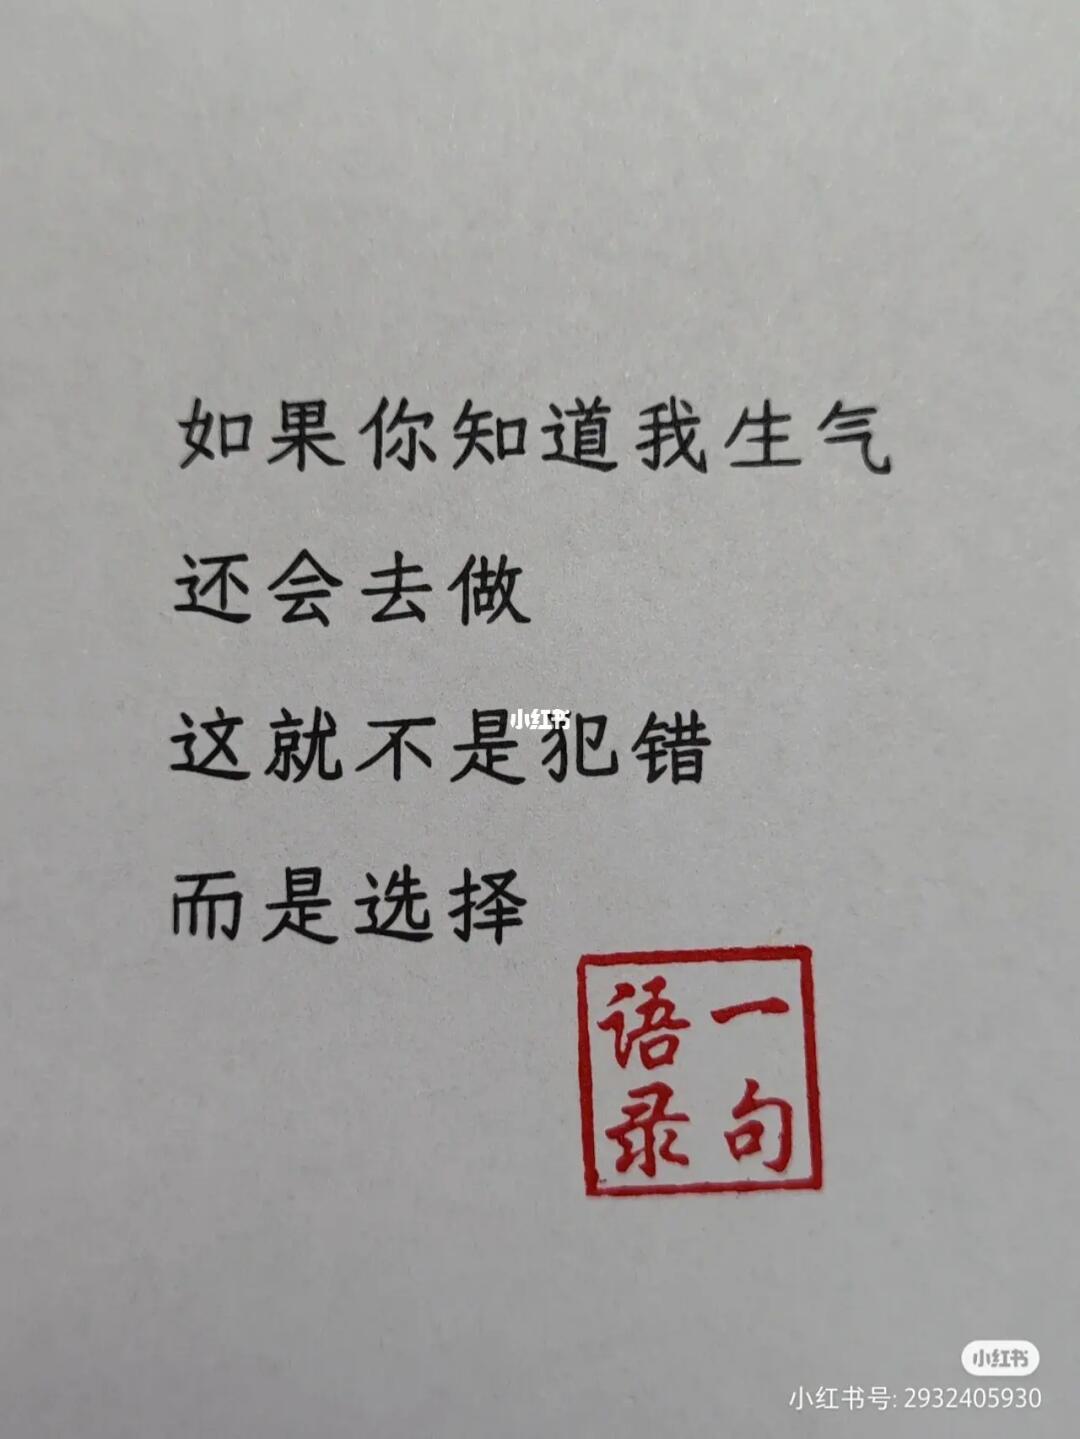 如果你知道我生气
还会去做
这就不是犯错
小红书
而是选择
一句
语录
小红书
小红书号: 2932405930